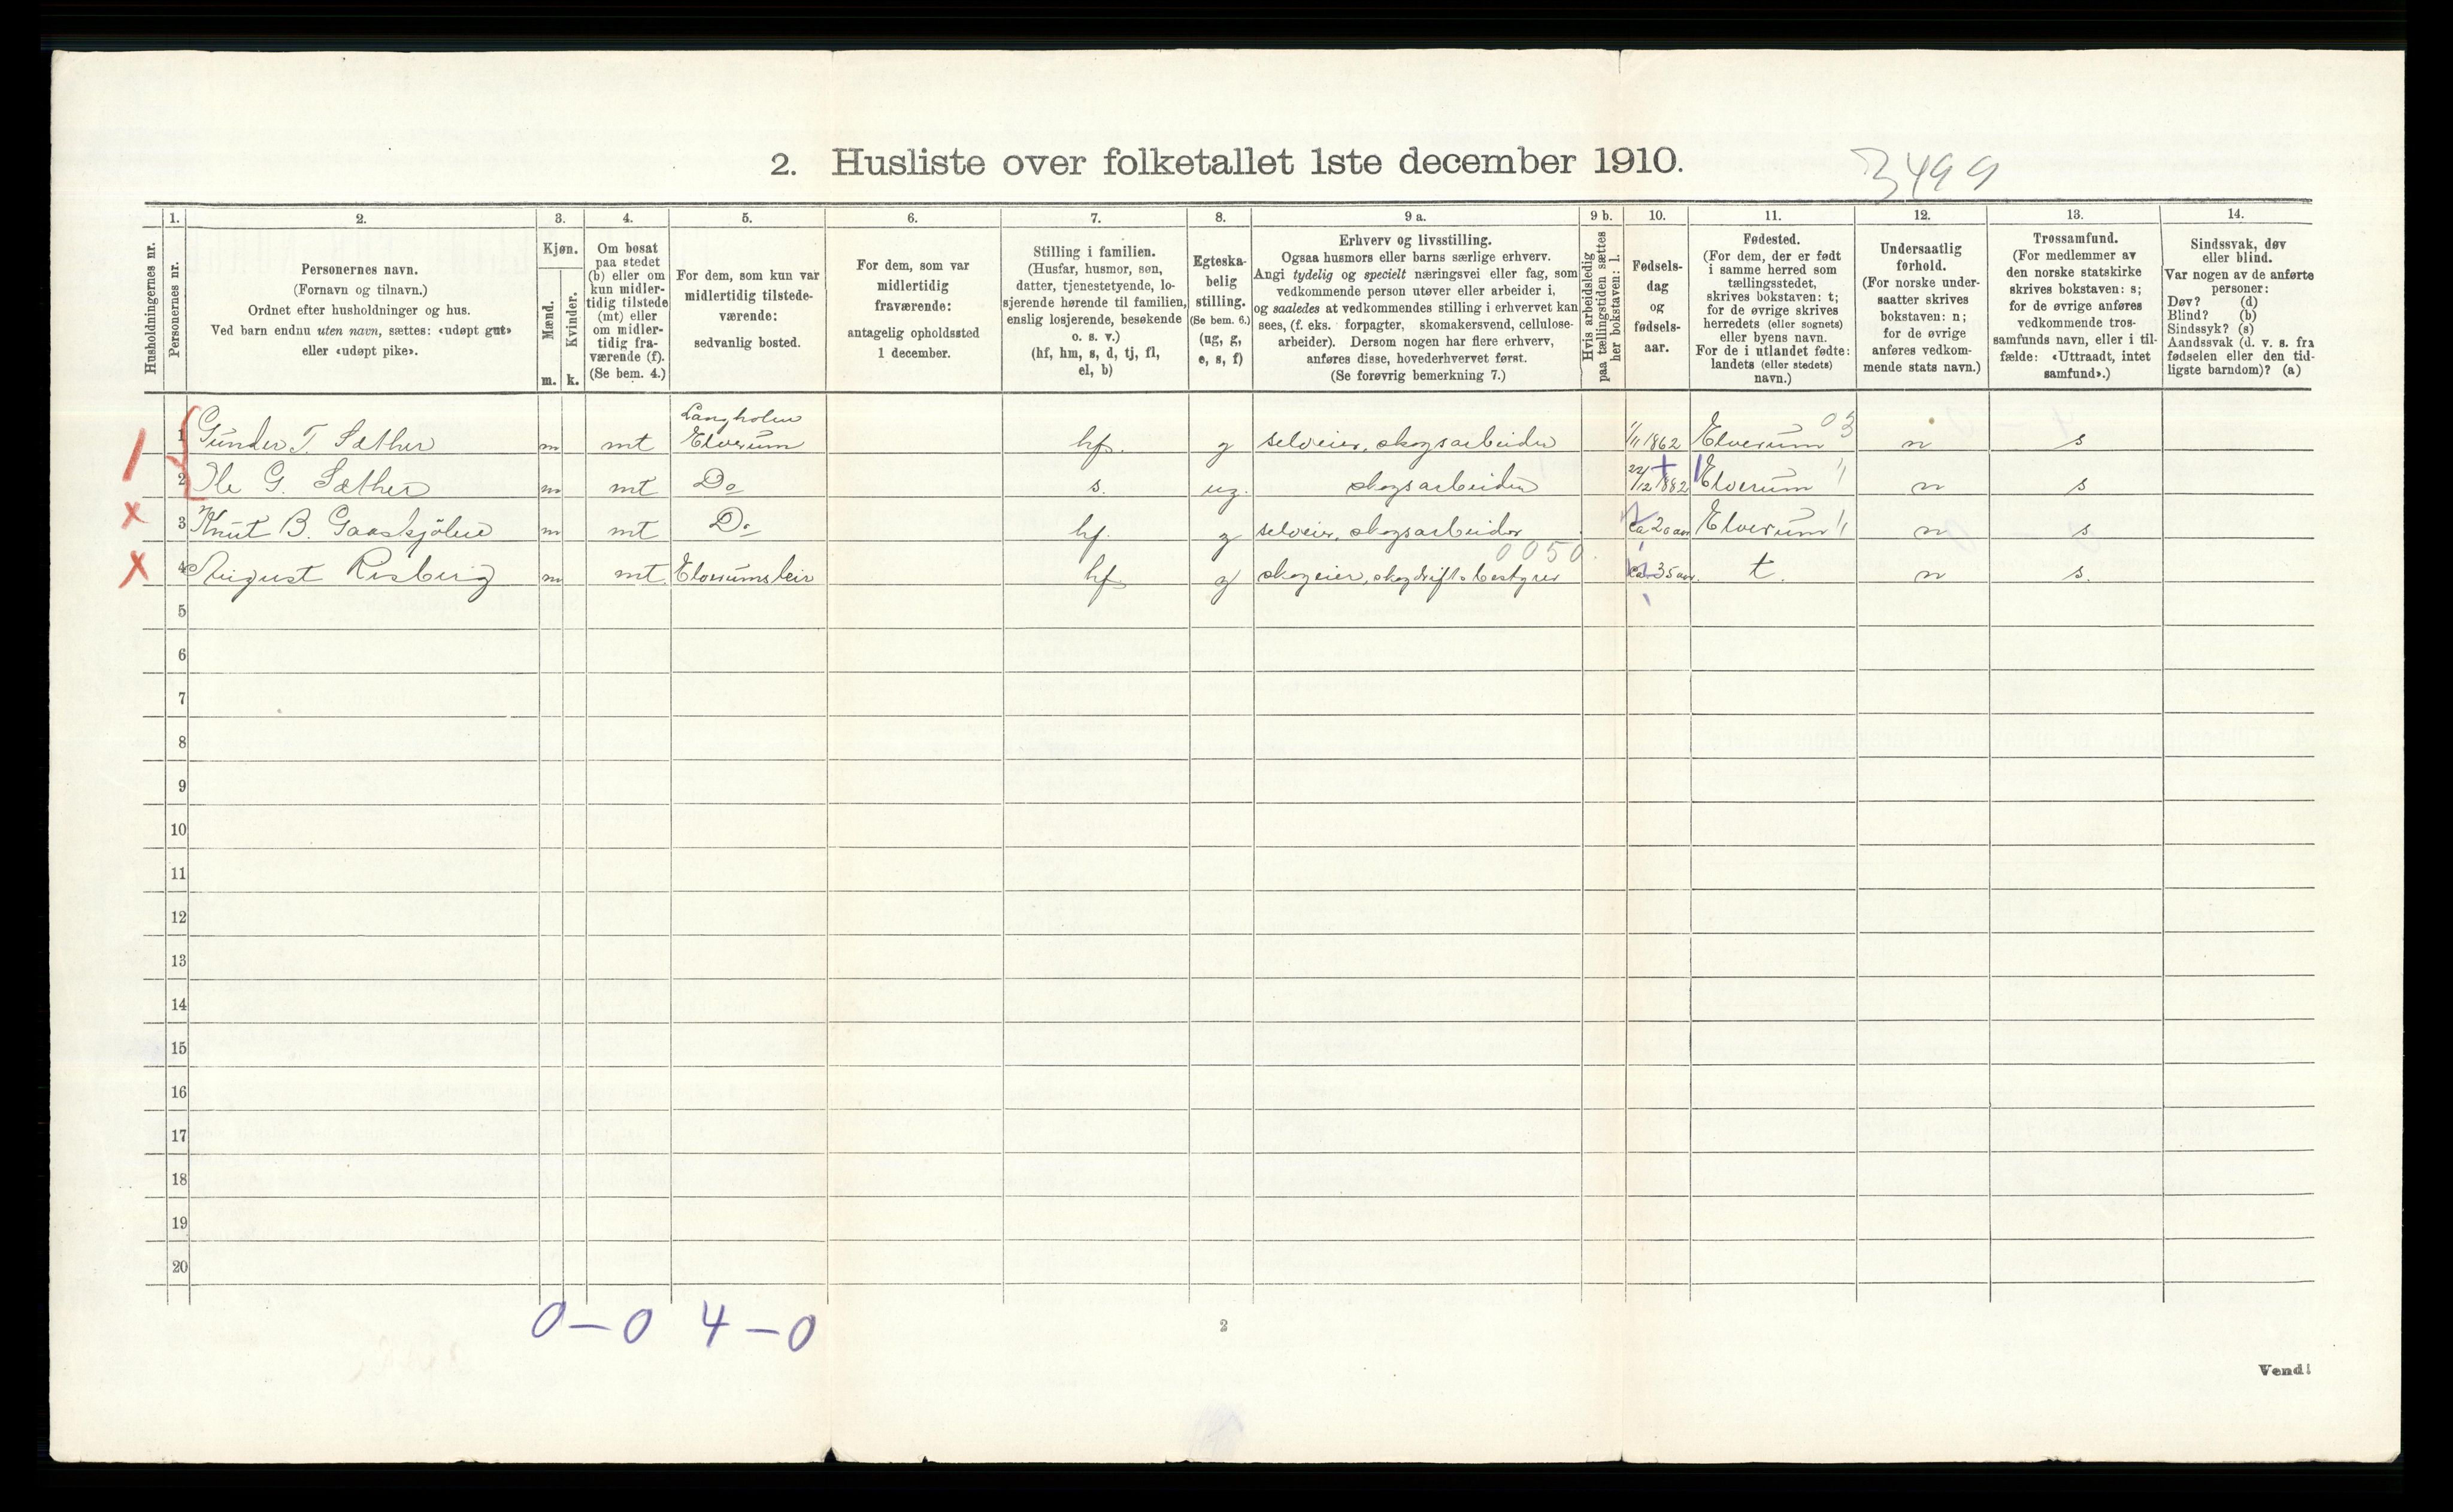 2. Husliste over folketallet 1ste december 1910.
3499
Husholdningernes nr.
1.
Personernes nr.
2.
Personernes navn.
(Fornavn og tilnavn.)
Ordnet efter husholdninger og hus.
Ved barn endnu uten navn, sættes: «udøpt gut»
eller «udøpt pike».
3.
Kjøn.
Mænd.
Kvinder.
m. k.
4.
Om bosat
paa stedet
(b) eller om
kun midler-
tidig tilstede
(mt) eller
om midler-
tidig fra-
værende (f).
(Se bem. 4.)
5.
For dem, som kun var
midlertidig tilstede-
værende:
sedvanlig bosted.
6.
For dem, som var
midlertidig
fraværende:
antagelig opholdssted
1 december.
7.
Stilling i familien.
(Husfar, husmor, søn,
datter, tjenestetyende, lo-
sjerende hørende til familien,
enslig losjerende, besøkende
o. s. v.)
(hf, hm, s, d, tj, fl,
el, b)
8.
Egteska-
belig
stilling.
(Se bem. 6.)
(ug, g,
e, s, f)
9 a.
Erhverv og livsstilling.
Ogsaa husmors eller barns særlige erhverv.
Angi tydelig og specielt næringsvei eller fag, som
vedkommende person utøver eller arbeider i,
og saaledes at vedkommendes stilling i erhvervet kan
sees, (f. eks. forpagter, skomakersvend, cellulose-
arbeider). Dersom nogen har flere erhverv,
anføres disse, hovederhvervet først.
(Se forøvrig bemerkning 7.)
9 b.
Hvis arbeidsledig
paa tællingstiden sættes
her bokstaven: l.
10.
Fødsels-
dag
og
fødsels-
aar.
11.
Fødested.
(For dem, der er født
i samme herred som
tællingsstedet,
skrives bokstaven: t;
for de øvrige skrives
herredets (eller sognets)
eller byens navn.
For de i utlandet fødte:
landets (eller stedets)
navn.)
12.
Undersaatlig
forhold.
(For norske under-
saatter skrives
bokstaven: n;
for de øvrige
anføres vedkom-
mende stats navn.)
13.
Trossamfund.
(For medlemmer av
den norske statskirke
skrives bokstaven: s;
for de øvrige anføres
vedkommende tros-
samfunds navn, eller i til-
fælde: «Uttraadt, intet
samfund».)
14.
Sindssvak, døv
eller blind.
Var nogen av de anførte
personer:
Døv? (d)
Blind? (b)
Sindssyk? (s)
Aandssvak (d. v. s. fra
fødselen eller den tid-
ligste barndom)? (a)
Langholm 03
1 Gunder T. Sæther m mt Elverum hf. g selveier, skogsarbeider 1/11 1862 Elverum n s
2 Ole G. Sæther m mt Do s. ug. skogsarbeider 22/12 1882 Elverum " n s
x 3 Knut B. Gaaskjölen m mt Do hf. g selveier, skogsarbeider ca 20 aar Elverum " n s
0050.
x 4 August Risberg m mt Elverumsleir hf g skogeier, skogdriftsbestyrer ca 35 aar t. n s.
5
6
7
8
9
10
11
12
13
14
15
16
17
18
19
20
0 — 0 4 — 0
2
Vend!